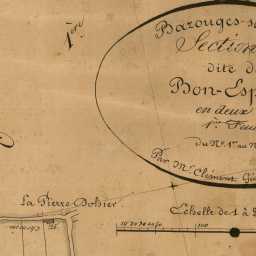 1ère
Bazouges-s
Section
dite d
Bon-Esp
en deux
1ère Feu
du N° 1er au N
Par Mr Clément Gé
La Pierre Dohier
Echelle de 1 à 2
100